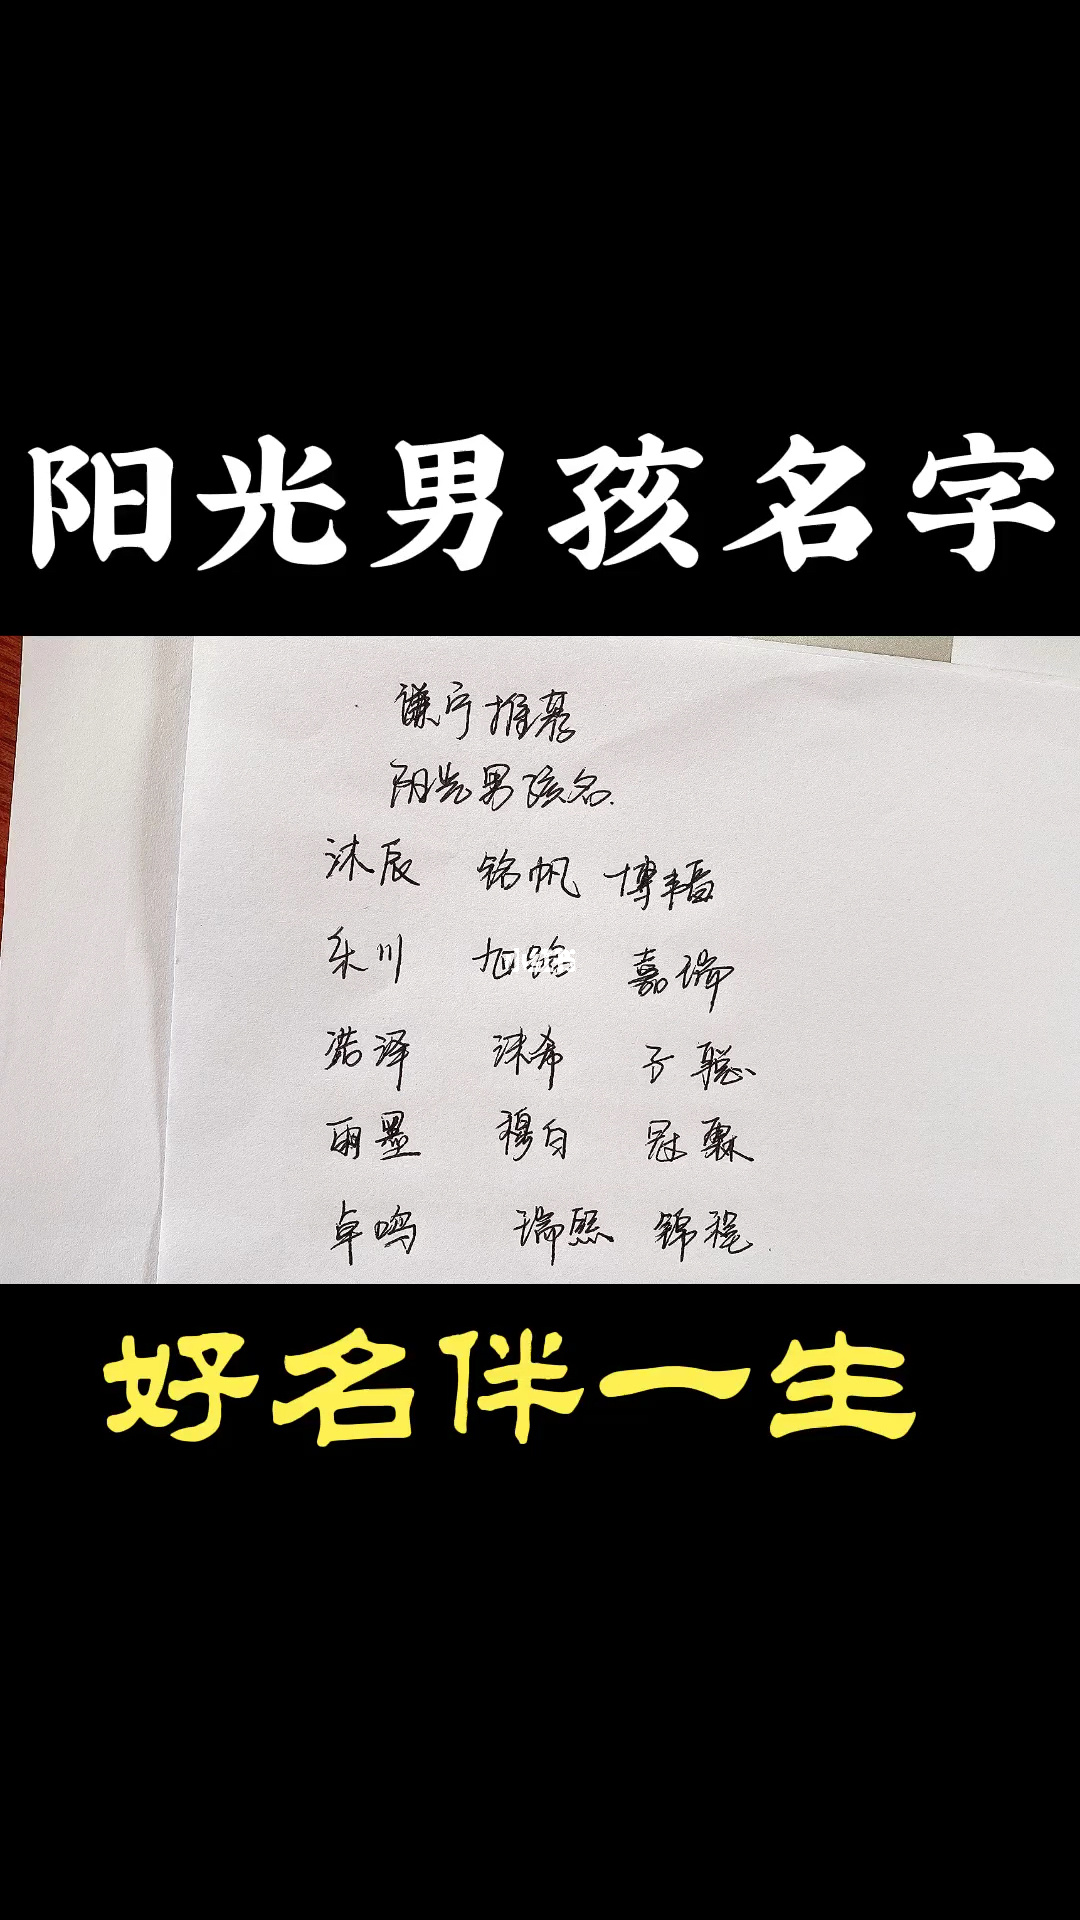 阳光男孩名字
谦宁推荐
阳光男孩名.
沐辰 铭帆 博韬
乐川 旭 嘉瑞
浩泽 沐希 子聪
雨墨 穆白 冠霖
卓鸣 瑞熙 锦程
好名伴一生